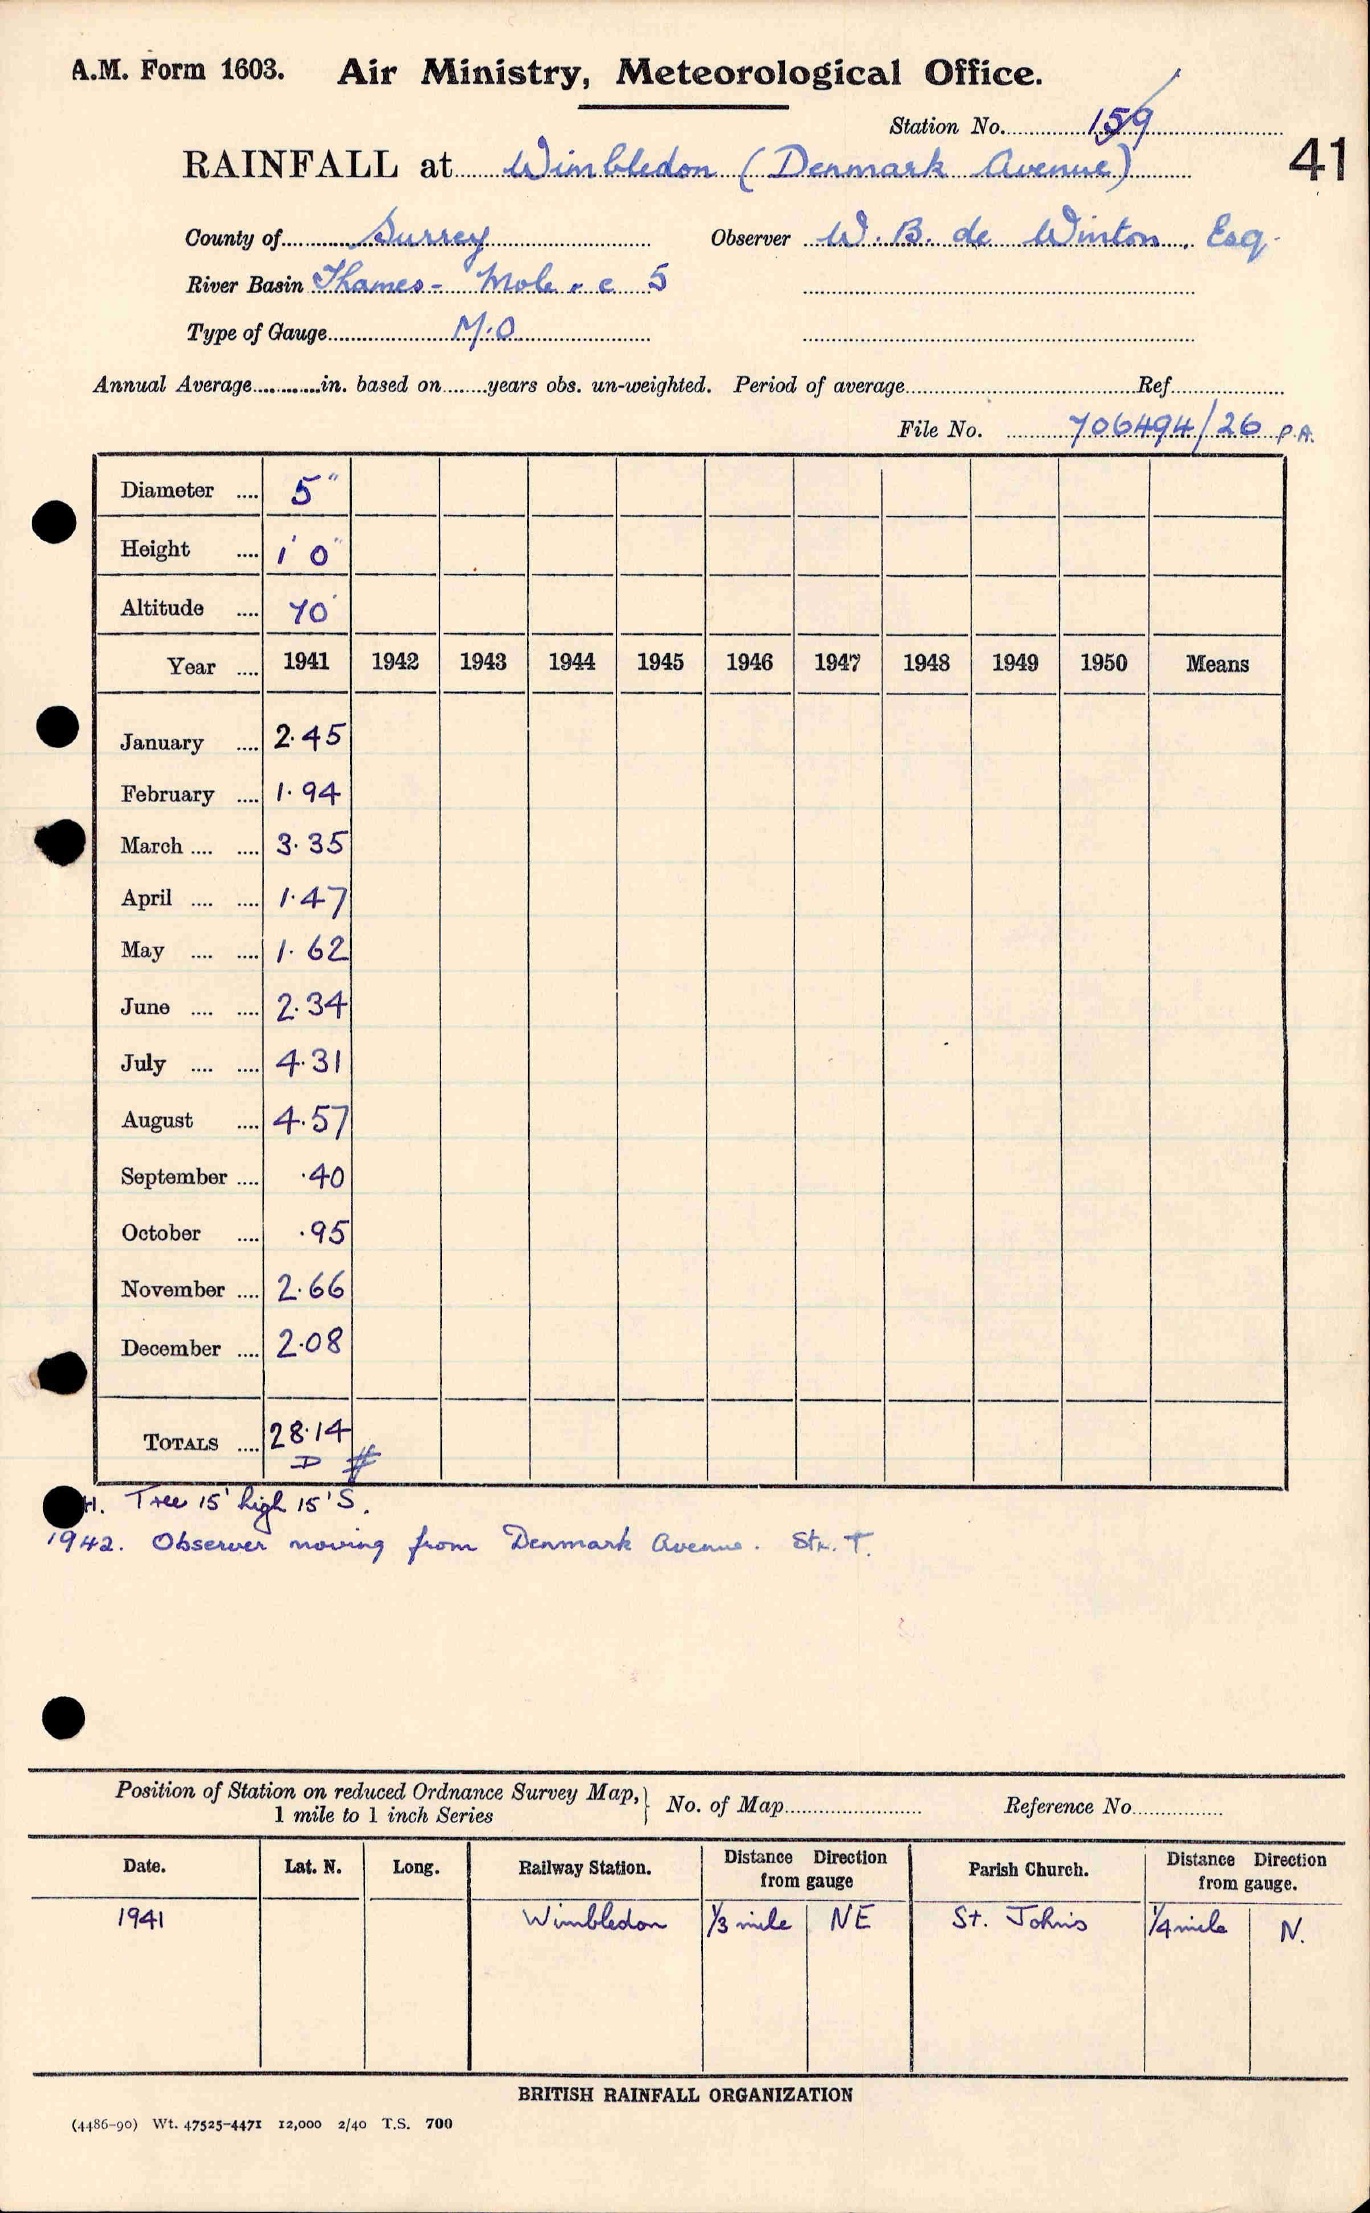 A.M. Form 1603. Air Ministry, Meteorological Office.
Station No. 159
RAINFALL at Wimbledon (Denmark Avenue) 41
County of Surrey Observer W. B. de Winton, Esq.
River Basin Thames - Mole . c 5
Type of Gauge M.O.
Annual Average in. based on years obs. un-weighted. Period of average Ref
File No. 706494/26 P.A.
Diameter .... 5"
Height .... 1' 0"
Altitude .... 70'
Year .... 1941 1942 1943 1944 1945 1946 1947 1948 1949 1950 Means
January .... 2.45
February .... 1.94
March .... .... 3.35
April .... .... 1.47
May .... .... 1.62
June .... .... 2.34
July .... .... 4.31
August .... 4.57
September .... .40
October .... .95
November .... 2.66
December .... 2.08
TOTALS .... 28.14
D #
Tree 15' high 15' S.
1942. Observer moving from Denmark Avenue. Stn. T.
Position of Station on reduced Ordnance Survey Map, } No. of Map Reference No.
1 mile to 1 inch Series
Date. Lat. N. Long. Railway Station. Distance Direction from gauge Parish Church. Distance Direction from gauge.
1941 Wimbledon 1/3 mile NE St. John's 1/4 mile N.
BRITISH RAINFALL ORGANIZATION
(4486-90) Wt. 47525-4471 12,000 2/40 T.S. 700